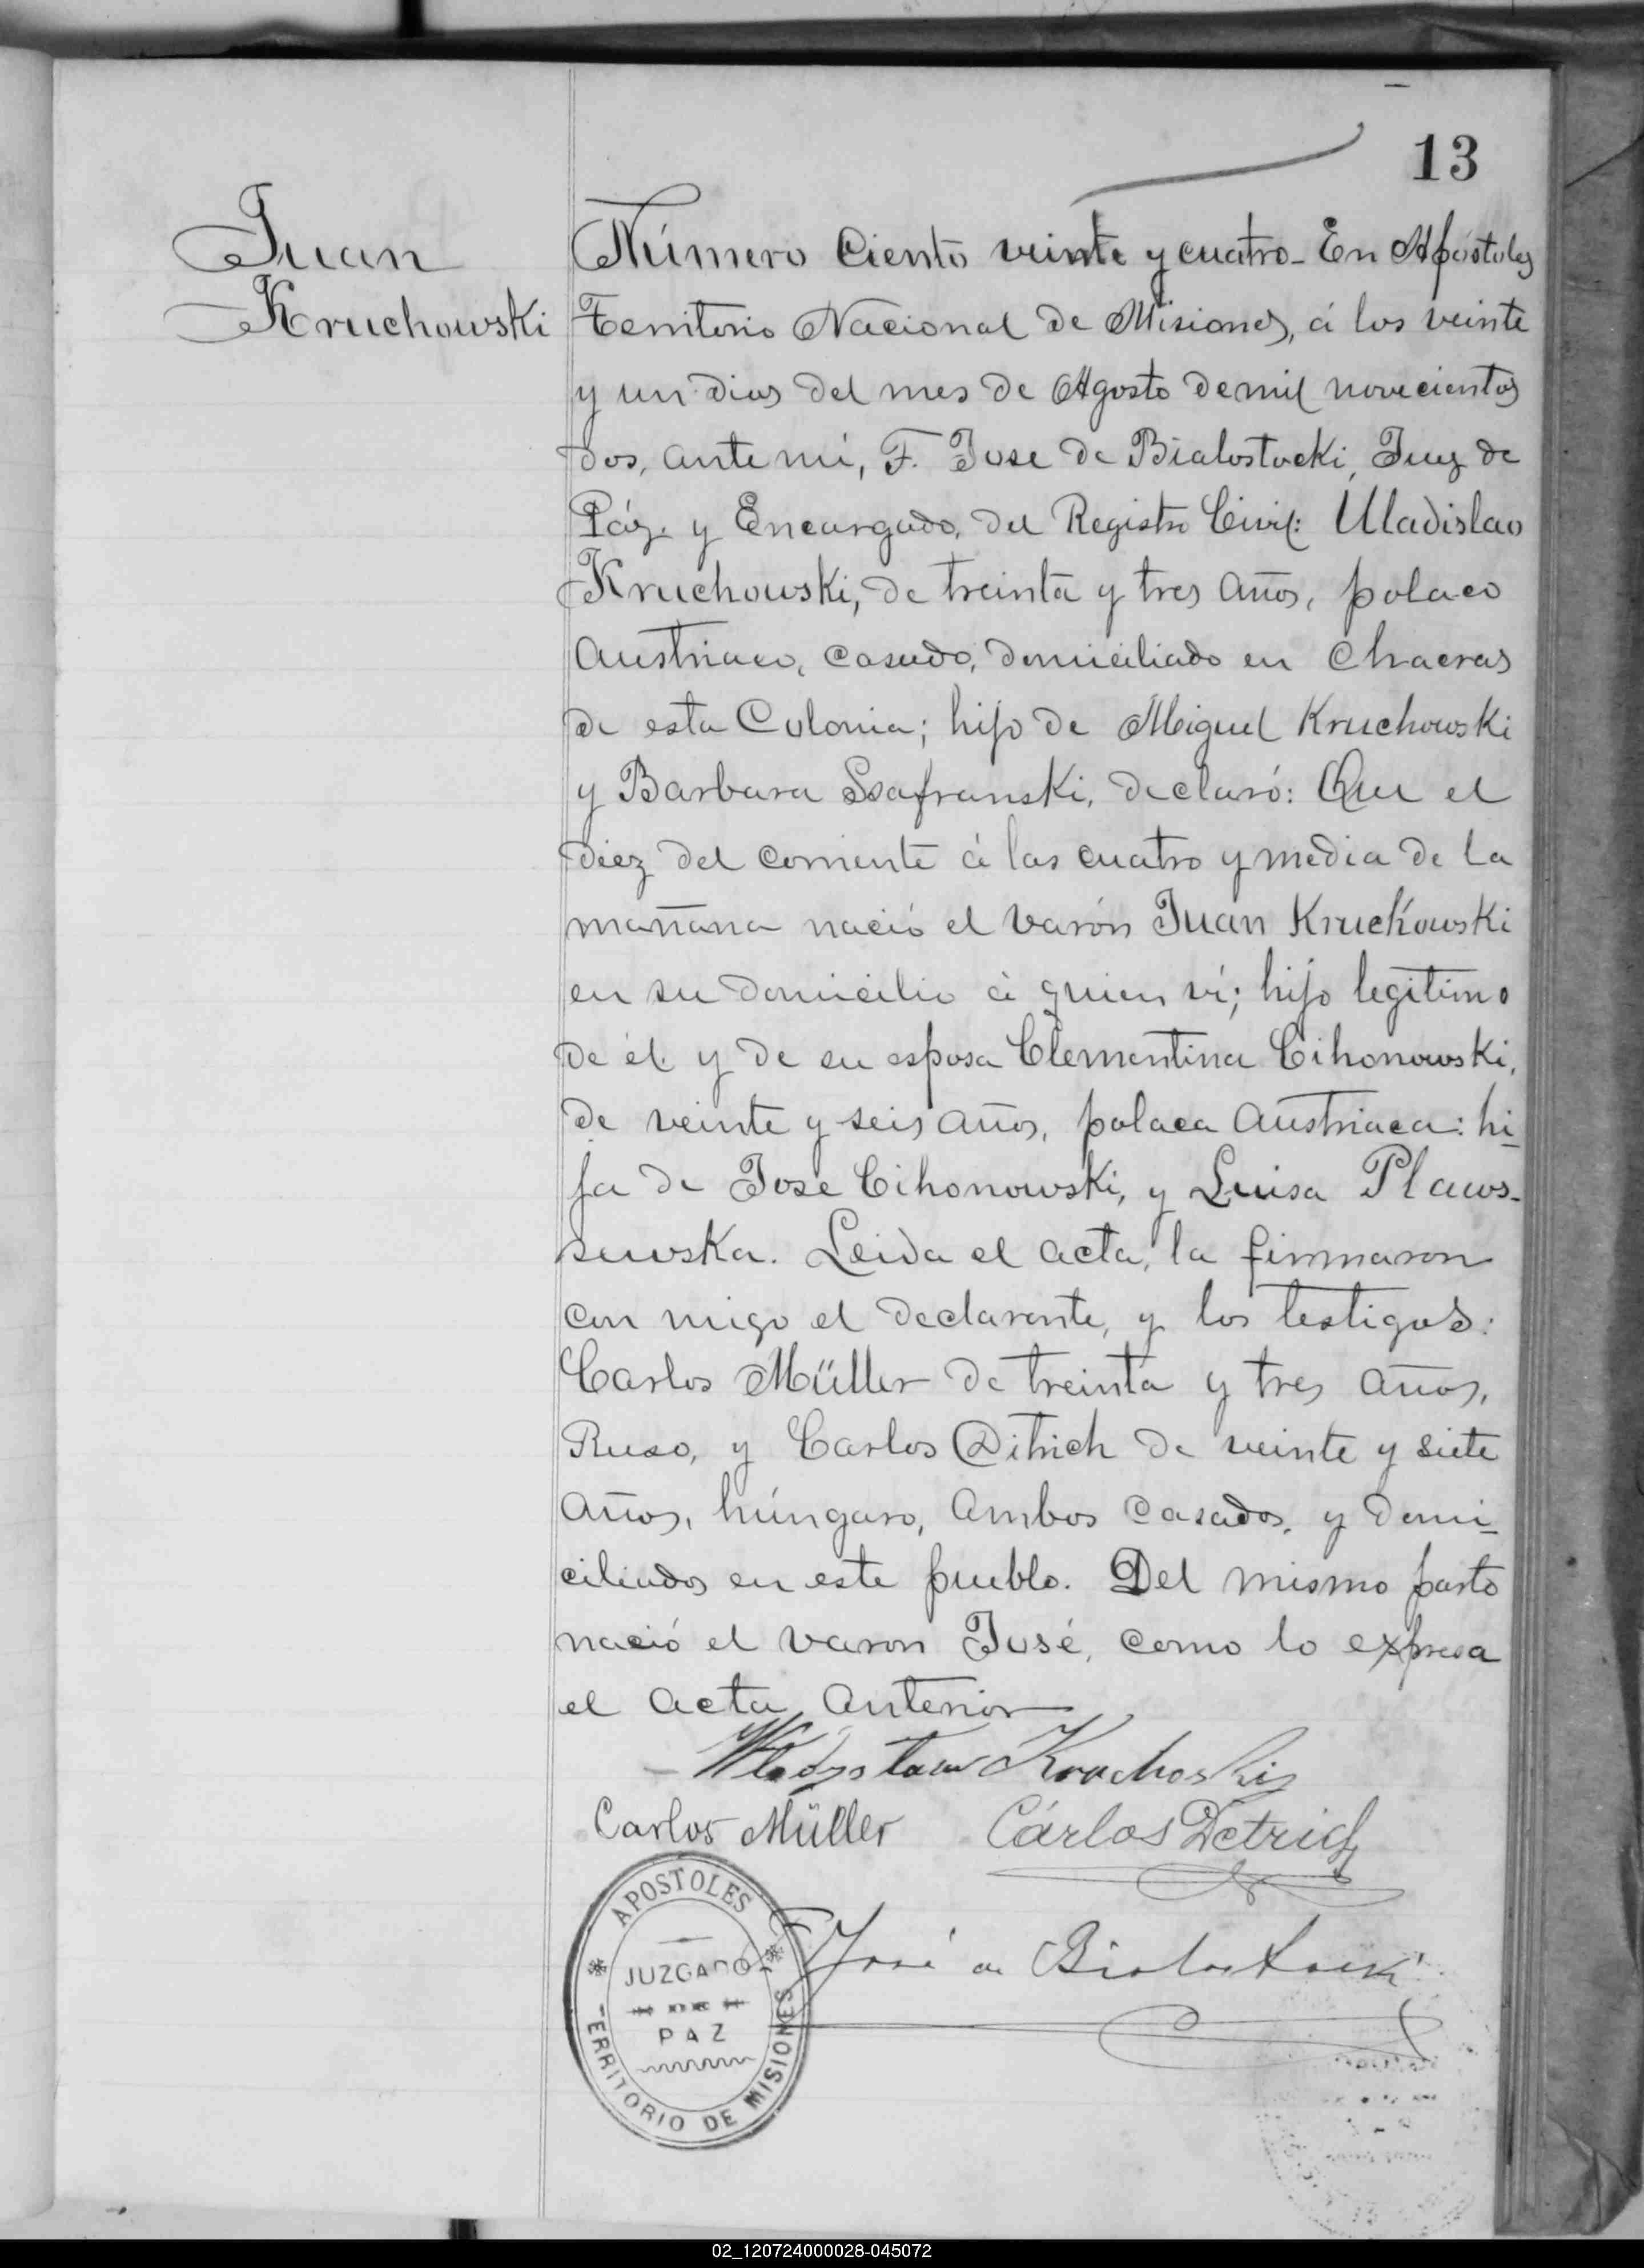 13
Juan
Kruchowski
Número Ciento veinte y cuatro - En Apóstoles
Territorio Nacional de Misiones, á los veinte
y un dias del mes de Agosto de mil novecientos
dos, ante mi, F. Jose de Bialostocki, Juez de
Páz y Encargado, del Registro Civil: Uladislao
Kruchowski, de treinta y tres años, polaco
Austriaco, casado, domiciliado en Chacras
de esta Colonia; hijo de Miguel Kruchowski
y Barbara Ssafranski, declaró: Que el
diez del corriente á las cuatro y media de la
mañana nació el varón Juan Kruchowski
en su domicilio á quien ví; hijo legitimo
de él y de su esposa Clementina Cihonowski,
de veinte y seis años, polaca Austriaca: hi-
ja de Jose Cihonowski, y Luisa Plaws-
sewska. Leida el acta, la firmaron
con migo el declarante, y los testigos:
Carlos Müller de treinta y tres años,
Ruso, y Carlos Ditrich de veinte y siete
años, húngaro, ambos casados, y domi-
ciliados en este pueblo. Del mismo parto
nació el varon José, como lo expresa
el acta anterior
Wladysław Kruchoski
Carlos Müller Cárlos Detrich
F. José de Bialostocki
APOSTOLES
JUZGADO
DE
PAZ
TERRITORIO DE MISIONES
02_120724000028-045072